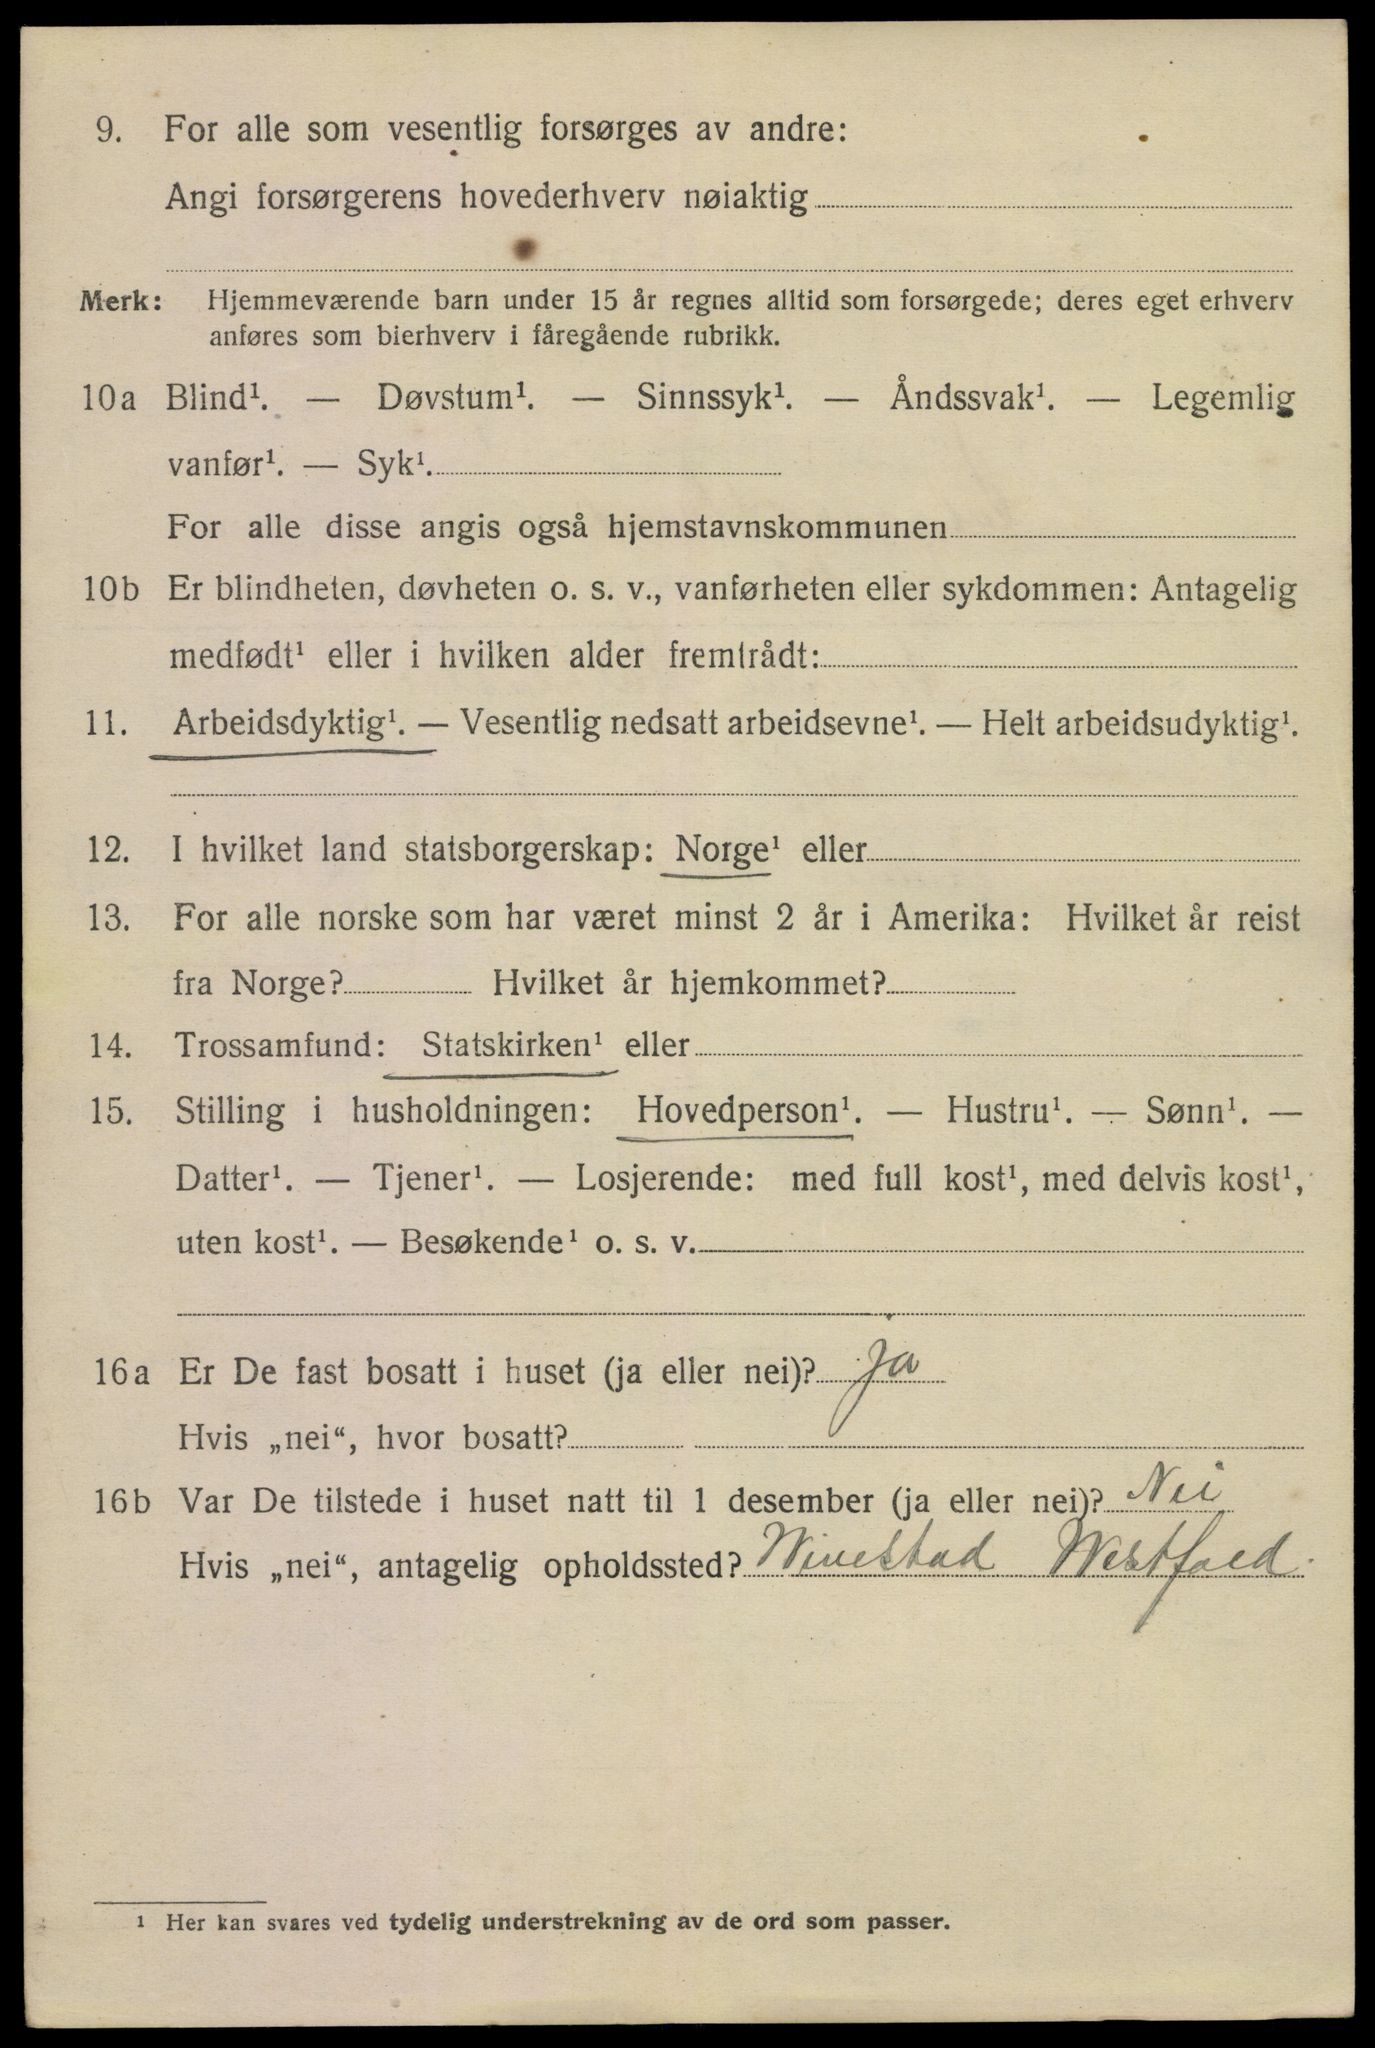 9. For alle som vesentlig forsørges av andre:
Angi forsørgerens hovederhverv nøiaktig
Merk: Hjemmeværende barn under 15 år regnes alltid som forsørgede; deres eget erhverv
anføres som bierhverv i føregående rubrikk.
10a Blind¹. — Døvstum¹. — Sinnssyk¹. — Åndssvak¹. — Legemlig
vanfør¹. — Syk¹.
For alle disse angis også hjemstavnskommunen
10b Er blindheten, døvheten o. s. v., vanførheten eller sykdommen: Antagelig
medfødt¹ eller i hvilken alder fremtrådt:
11. Arbeidsdyktig¹. — Vesentlig nedsatt arbeidsevne¹. — Helt arbeidsudyktig¹.
12. I hvilket land statsborgerskap: Norge¹ eller
13. For alle norske som har været minst 2 år i Amerika: Hvilket år reist
fra Norge? Hvilket år hjemkommet?
14. Trossamfund: Statskirken¹ eller
15. Stilling i husholdningen: Hovedperson¹. — Hustru¹. — Sønn¹. —
Datter¹. — Tjener¹. — Losjerende: med full kost¹, med delvis kost¹,
uten kost¹. — Besøkende¹ o. s. v.
16a Er De fast bosatt i huset (ja eller nei)? ja
Hvis „nei“, hvor bosatt?
16b Var De tilstede i huset natt til 1 desember (ja eller nei)? Nei
Hvis „nei“, antagelig opholdssted? Westfold
¹ Her kan svares ved tydelig understrekning av de ord som passer.